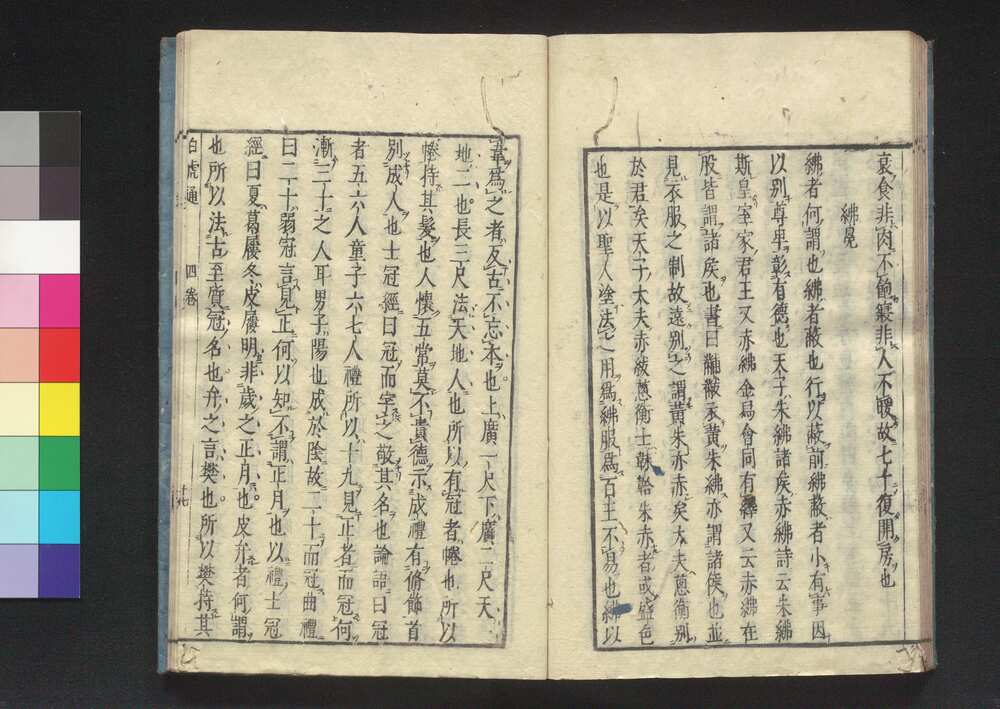 衰食非肉不飽寢非人不暖故七十復開房也
紼冕
紼者何謂也紼者蔽也行以蔽前紼蔽者小有事因
以別尊卑彰有德也天子朱紼諸矦赤紼詩云朱紼
斯皇室家君王又赤紼金舄會同有繹又云赤紼在
股皆謂諸矦也書曰黼黻衣黃朱紼亦謂諸侯也並
見衣服之制故遠別之謂黃朱亦赤矣大夫蔥衡別
於君矣天子大夫赤紱蔥衡士韎韐朱赤者或盛色
也是以聖人塗法之用爲紼服爲百王不易也紼以
韋爲之者反古不忘本也上廣一尺下廣二尺天
地二也長三尺法天地人也所以有冠者㡓也所以
㡓持其髮也人懷五常莫不貴德示成禮有脩飾首
別成人也士冠經曰冠而字之敬其名也論語曰冠
者五六人童子六七人禮所以十九見正者而冠何
漸三十之人耳男子陽也成於陰故二十而冠曲禮
曰二十弱冠言見正何以知不謂正月也以禮士冠
經曰夏葛屨冬皮屨明非歲之正月也皮弁者何謂
也所以法古至質冠名也弁之言樊也所以樊持其
白虎通 四卷 十七